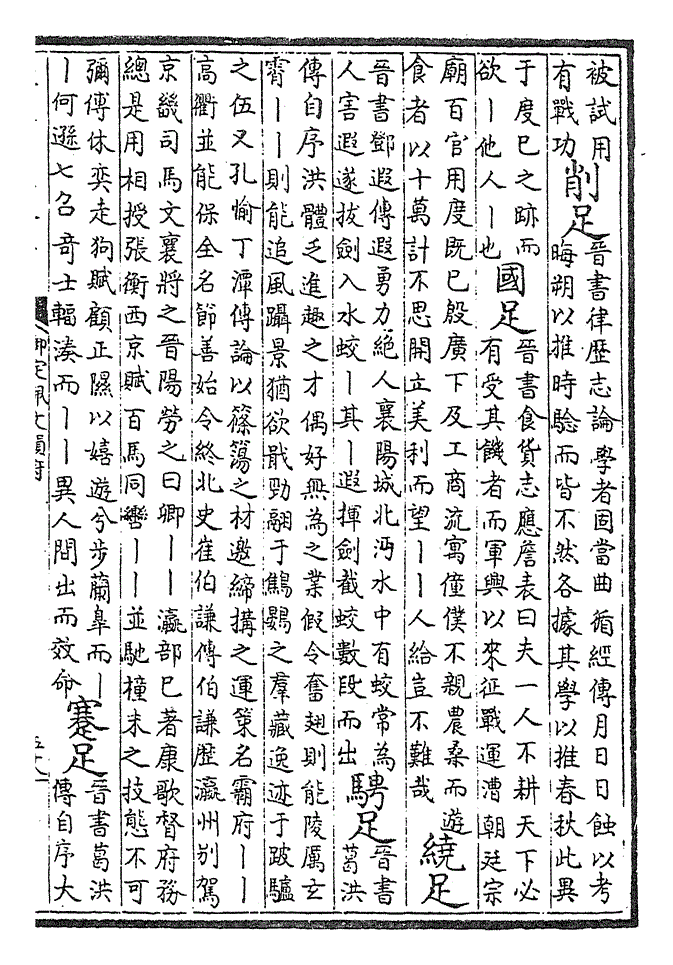 被試用
有戰功
削足
晉書律歷志論學者固當曲循經傳月日日蝕以考
晦朔以推時驗而皆不然各據其學以推春秋此異
于度巳之跡而
欲丨他人丨也
國足
晉書食貨志應詹表曰夫一人不耕天下必
有受其饑者而軍興以來征戰運漕朝廷宗
廟百官用度既巳殷廣下及工商流寓僮僕不親農桑而遊
食者以十萬計不思開立美利而望丨丨人給豈不難哉
繞足
晉書鄧遐傳遐勇力絕人襄陽城北沔水中有蛟常為
人害遐遂拔劍入水蛟丨其丨遐揮劍截蛟數段而出
騁足
晉書
葛洪
傳自序洪體乏進趣之才偶好無為之業假令奮翅則能陵厲玄
霄丨丨則能追風躡景猶欲戢勁翮于鷦鷃之羣藏逸迹于跛驢
之伍又孔愉丁潭傳論以篠簜之材邀締搆之運策名霸府丨丨
高衢並能保全名節善始令終北史崔伯謙傳伯謙歷瀛州別駕
京畿司馬文襄將之晉陽勞之曰卿丨丨瀛部巳著康歌督府務
總是用相授張衡西京賦百馬同轡丨丨並馳橦末之技態不可
彌傅休奕走狗賦顧正隰以嬉遊兮步蘭臯而丨
丨何遜七召奇士輻湊而丨丨異人間出而效命
蹇足
晉書葛洪
傳自序大
御定佩文韻府